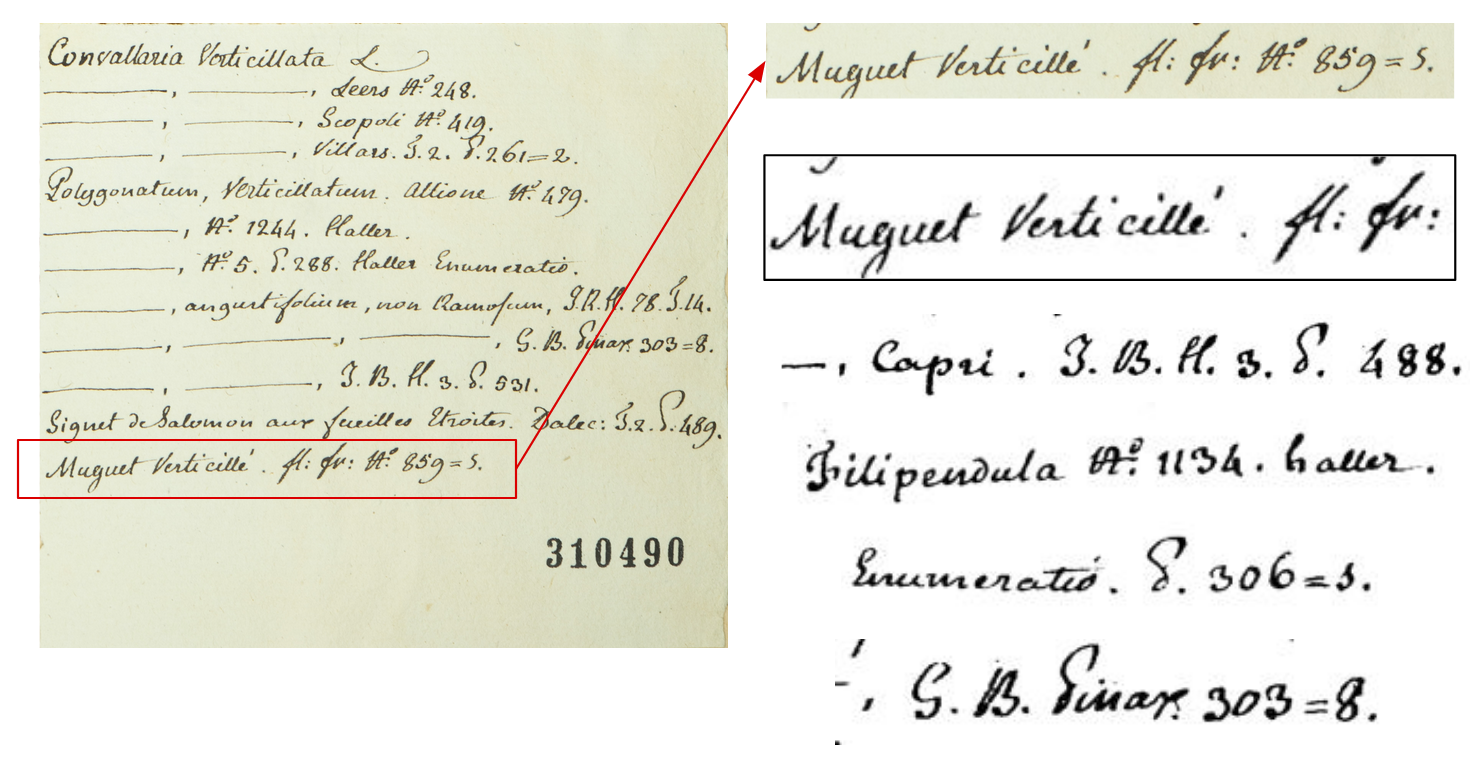 Convallaria Verticillata L.
———, ———, Leers N.º 248.
———, ———, Scopoli N.º 419.
———, ———, Villars. T. 2. P. 261=2.
Polygonatum, Verticillatum. Allione N.º 479.
———, N.º 1244. Haller.
———, N.º 5. P. 288. Haller Enumeratio.
———, angustifolium, non Ramosum, I.R.H. 78. T. 14.
———, ———, ———, G. B. Pinax. 303=8.
———, ———, J. B. H. 3. P. 531.
Signet de Salomon aux feuilles Etroites. Dalec: T. 2. P. 489.
Muguet Verticillé. fl: fr: N.º 859=5.
310490
Muguet Verticillé. fl: fr: N.º 859=5.
Muguet Verticillé. fl: fr:
—, Capri. J. B. H. 3. P. 488.
Filipendula N.º 1134. haller.
Enumeratio. P. 306=5.
—, G. B. Pinax. 303=8.